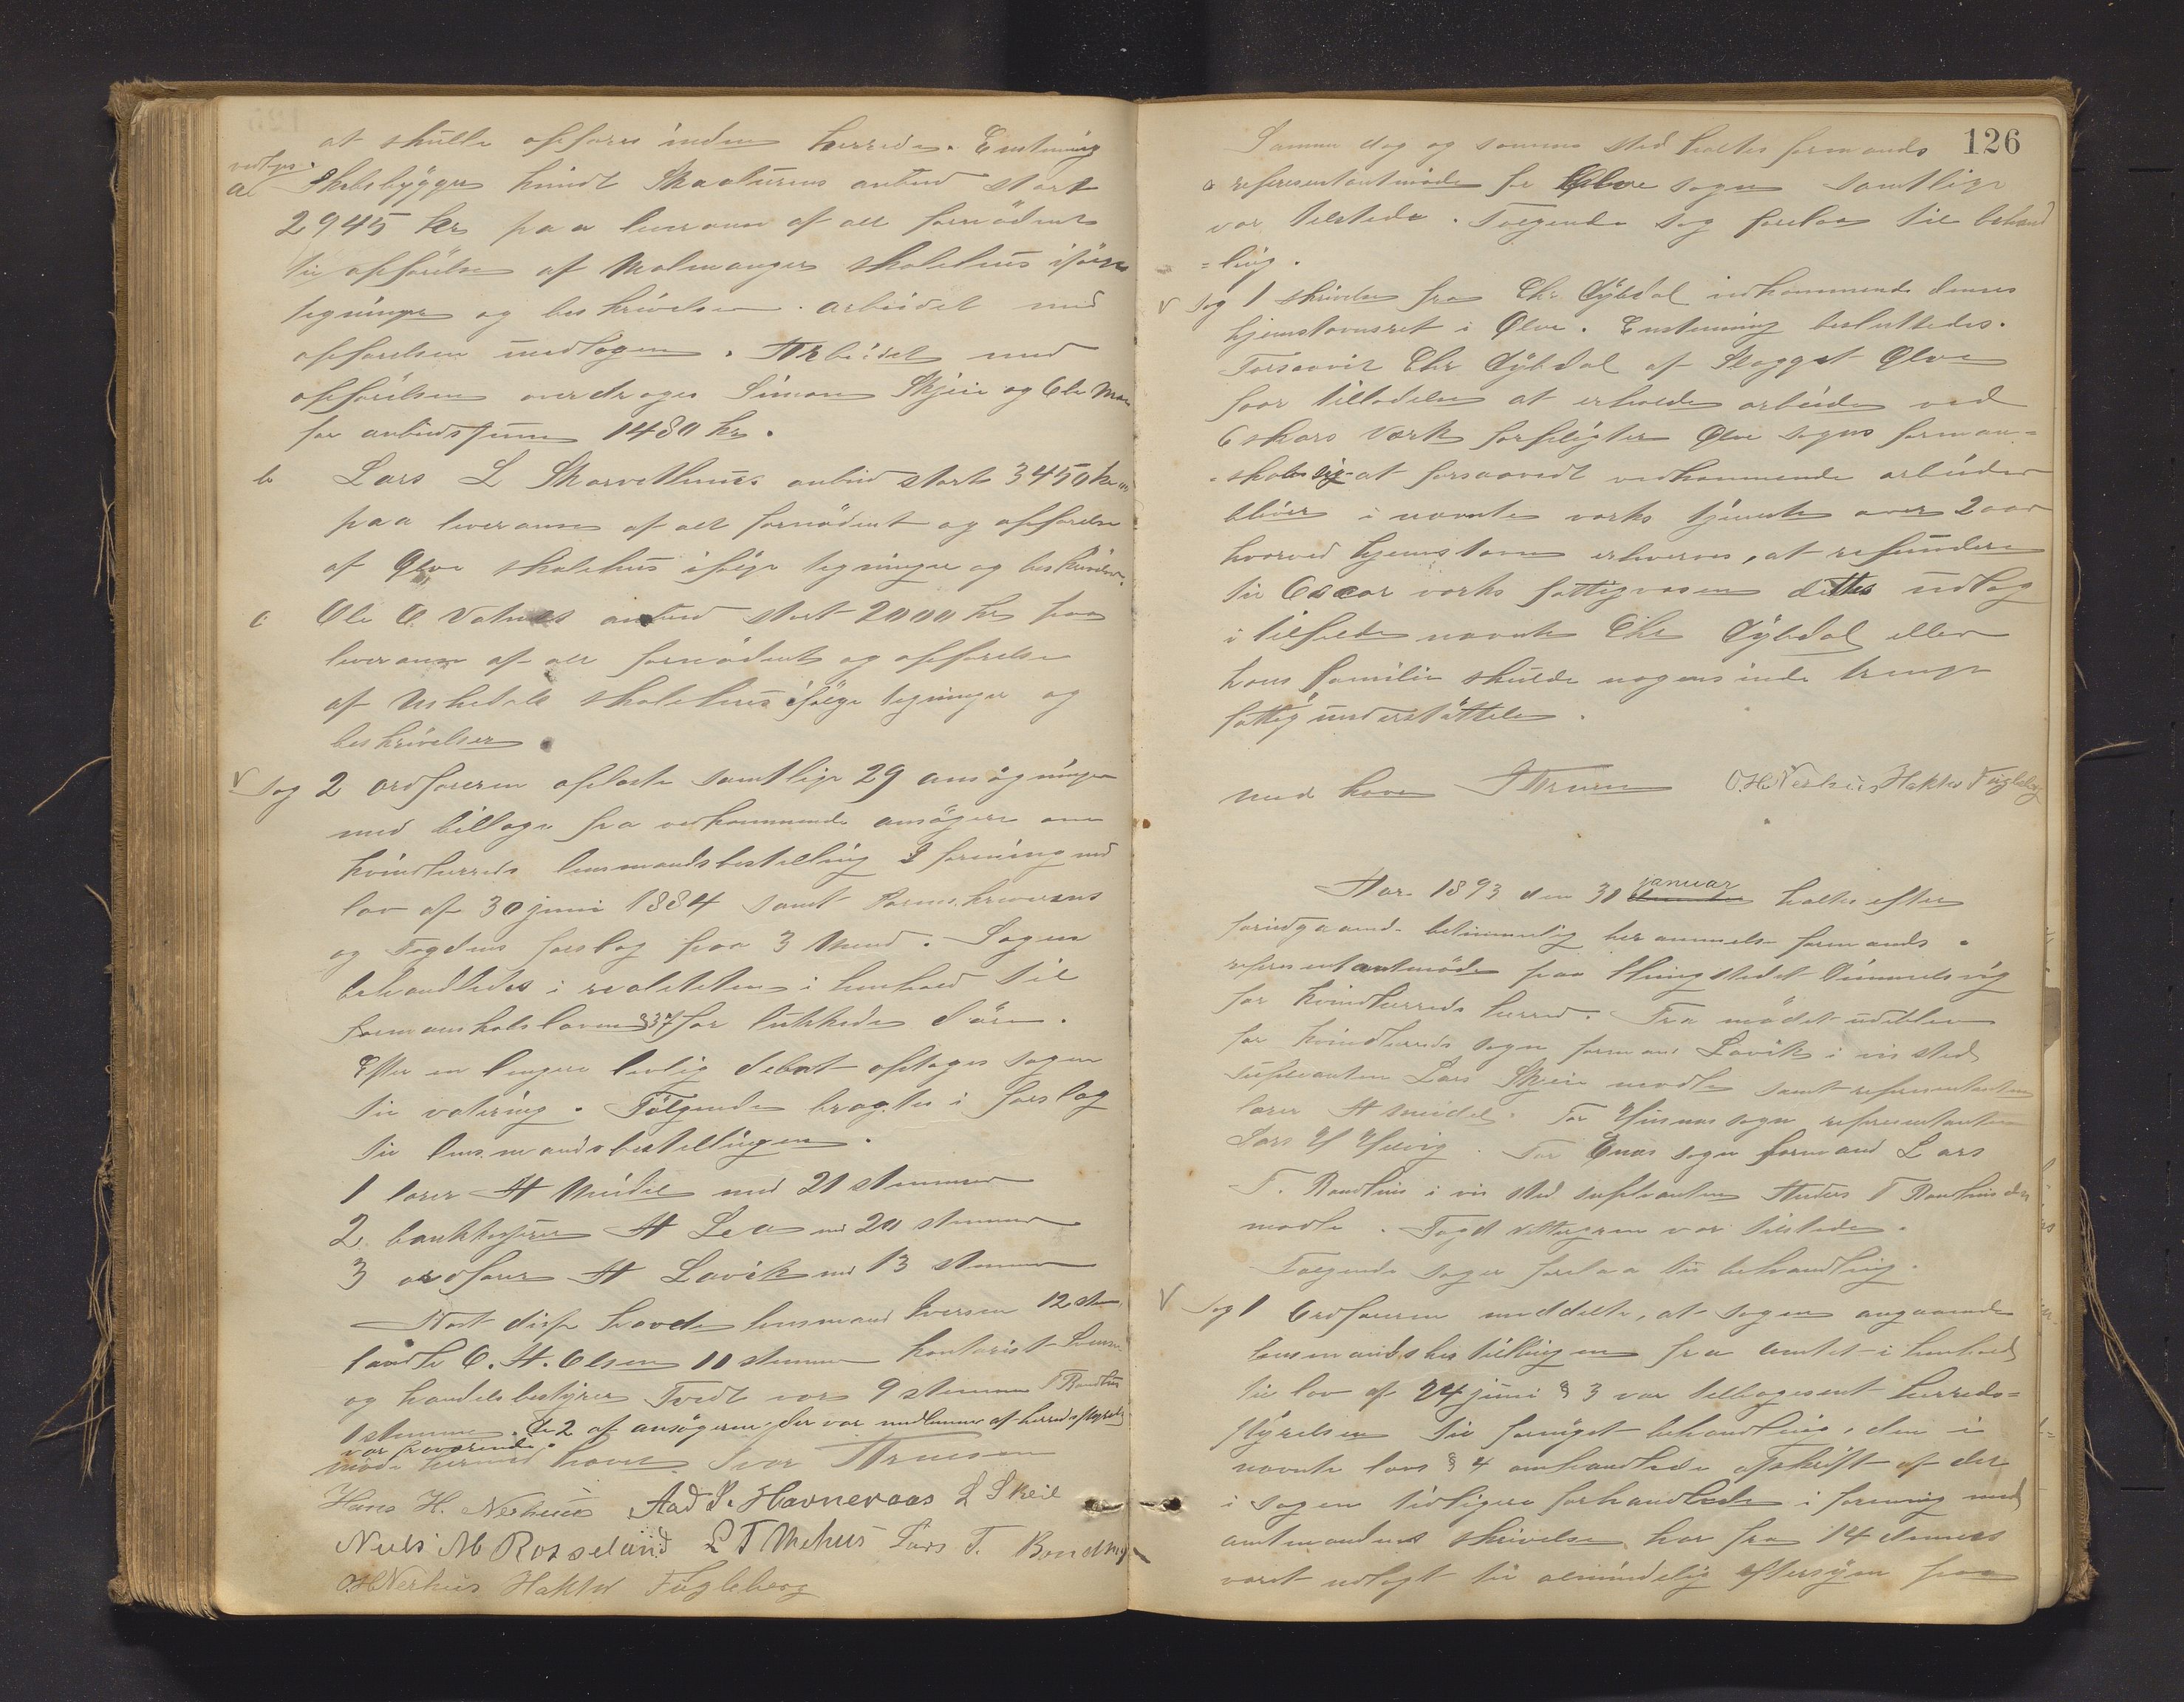 at skulle opføres inden herredet. Enstemmig
vedtoges.
a Skibsbygger Knudt Skaaluren anbud stort
2945 kr paa leveranse af alt fornødent
til opførelse af Malmanger skolehus ifølge
tegninger og beskrivelser. arbeidet med
opførelsen undtagen. Arbeidet med
opførelsen overdroges Simon Skjeie og Ole Moe
for anbudssum 1480 kr.
b Lars L Skorvethuus anbud stort 3450 kr
paa leveranse af alt fornødent og opførelse
af Ølve skolehus ifølge tegninger og beskrivelser.
c Ole O Vatnes anbud stort 2000 kr paa
leveranse af alt fornødent og opførelse
af Uskedals skolehus ifølge tegninger og
beskrivelser.
V Sag 2 ordføreren oplæste samtlige 29 ansøgninger
med billage fra vedkommende ansøgere om
Kvindherreds lensmandsbestilling I forening med
lov af 30 juni 1884 samt
og Fogdens forslag paa 3 Mænd. Sagen
behandledes i realiteten i henhold til
formanskabsloven § 37 for lukkede døre.
Efter en længere livlig debat optoges sagen
til votering. Følgende bragtes i forslag
til lensmandsbestillingen.
1 lærer A Meidel med 21 stemmer
2 bankkasserer A Lea med 20 stemmer
3 ordfører A Lavik med 13 stemmer
Næst disse havde lensmand Iversen 12 stm.
O. A. Olsen 11 stemmer kontorist
og handelsbestyrer Tvedt 9 stemmer
1 stemme. De 2 af ansøgerne der var medlemmer af herredsstyrelsen
var fraværende.
møde hermed hævet Ivar Arnesen
Hans H. Nerhuus Aad S. Havneraas L Skeie
Niels M Rosseland L T Mehus Lars T. Bondhus
O.H Nerhus Haktor Fugleberg
126
Samme dag og samme sted holtes formands
& representantmøde for Ølve sogn samtlige
var tilstede. Følgende sag forelaa til behand
=ling.
V Sag 1 skrivelse fra Chr Dybdal vedkommende dennes
hjemstavnsret i Ølve. Enstemmig besluttedes.
Forsaavit Chr Dybdal af Skogget Ølve
faar tilladelse at erholde arbeide ved
Oskars Værk forpligter Ølve sogns forman=
=skab sig at forsaavidt vedkommende arbeider
bliver i nævnte værks tjeneste over 2 aar
hvorved hjemstavn erhverves, at refundere
til Oscar værks fattigvæsen dettes udlæg
i tilfælde nævnte Chr Dybdal eller
hans familie skulde nogensinde trænge
fattigunderstøttelse.
med hævet I Arnesen O.H Nerhus Haktor Fugleberg
Aar 1893 den 30 januar holtes efter
foregaaende betimmelig berammelse formands &
representantmøde paa thingstedet Dimmelsvig
for Kvindherreds herred. Fra mødet udeblev
for Kvindherreds sogn formand Lavik i vis sted
supleanten Lars Skjeie mødte samt representanten
lærer A Meidel. For Husnæs sogn representanten
Lars H Helvig. For Ænæs sogn formand Lars
T. Bondhus i vis sted supleanten Anders T Bondhus
mødte. Fogd var tilstede.
Følgende sager forelaa til behandling.
V Sag 1 Ordføreren meddelte, at sagen angaaende
lensmandsbestillingen fra amtet i henhold
til lov af 24 juni § 3 var tilbagesent herreds=
styrelsen til fornyet behandling, den i
nævnte lovs § 4 omhandlede afskrift af det
i sagen tidligere forhandlede i forening med
amtmandens skrivelse har fra 14 dennes
været udlagt til almindelig eftersyn paa